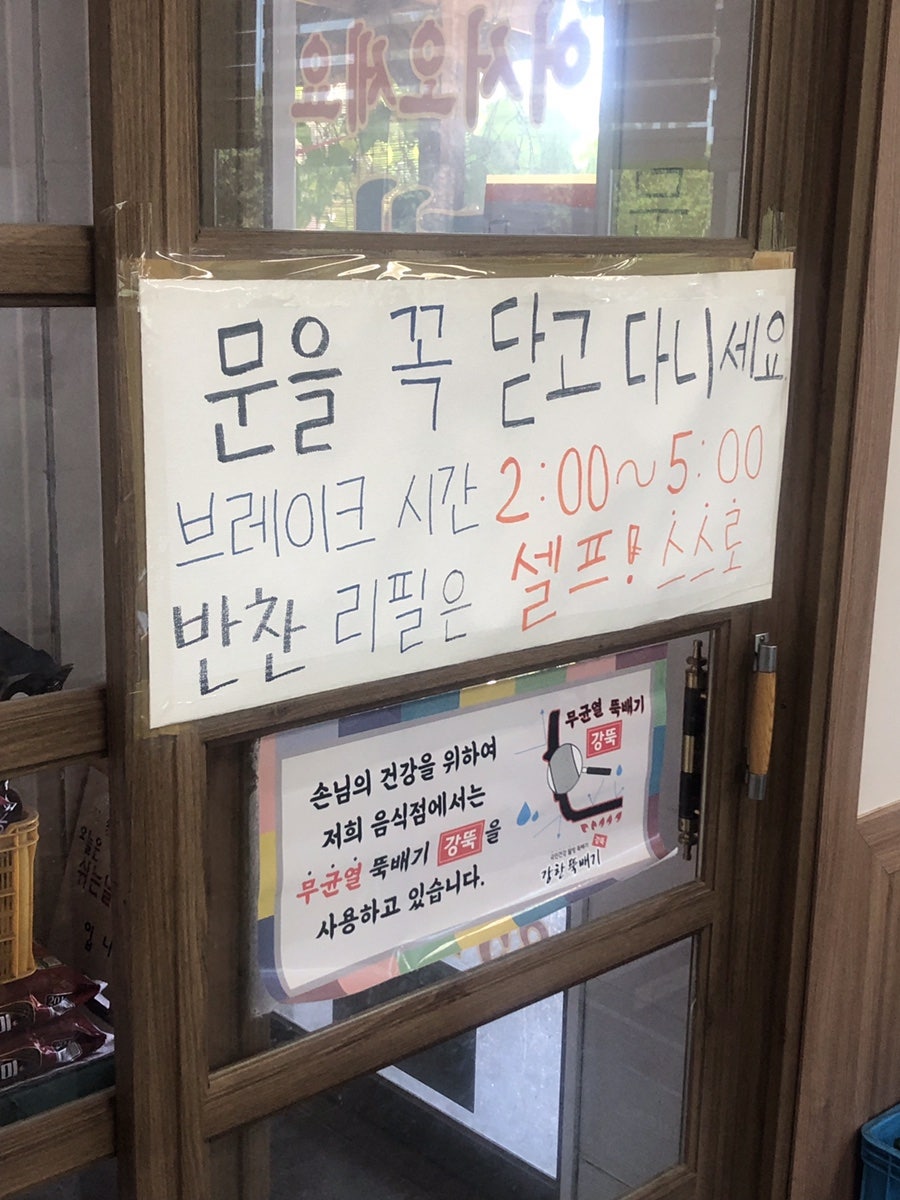 어서오세요
문을 꼭 닫고 다니세요.
브레이크 시간 2:00~5:00
반찬 리필은 셀프! 스스로
손님의 건강을 위하여
저희 음식점에서는
무균열 뚝배기 강뚝을
사용하고 있습니다.
무균열 뚝배기
강뚝
강한 뚝배기
오늘은
쉬는 날
입니